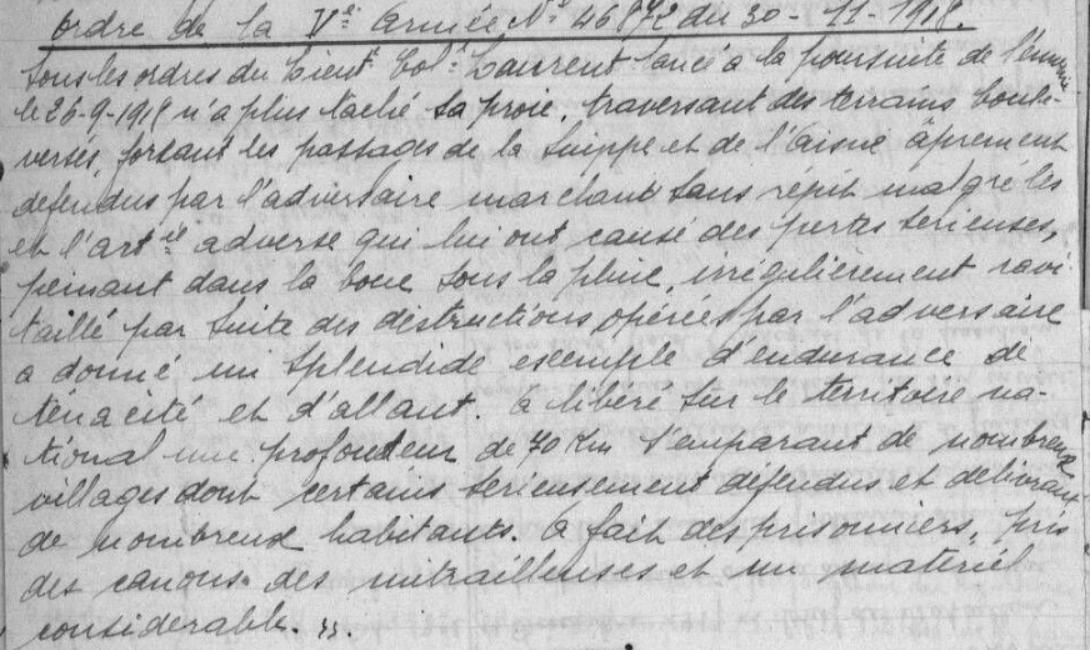 Ordre de la Ve Armée No 46872 du 30-11-1918.
Sous les ordres du Lieut Col: Laurent lancé à la poursuite de l'ennemi
le 26-9-1918 n'a plus laché sa proie, traversant des terrains boule-
versés, forçant les passages de la Suippe et de l'Aisne âprement
defendus par l'adversaire marchant sans répit malgré les
et l'artie adverse qui lui ont causé des pertes serieuses,
peinant dans la boue sous la pluie, irrégulièrement ravi
taillé par suite des destructions opérées par l'adversaire
a donné un splendide exemple d'endurance de
ténacité et d'allant. a libéré sur le territoire na-
tional une profondeur de 70 Km s'emparant de nombreux
villages dont certains serieusement défendus et délivrant
de nombreux habitants. a fait des prisonniers, pris
des canons. des mitrailleuses et un matériel
considerable. ".